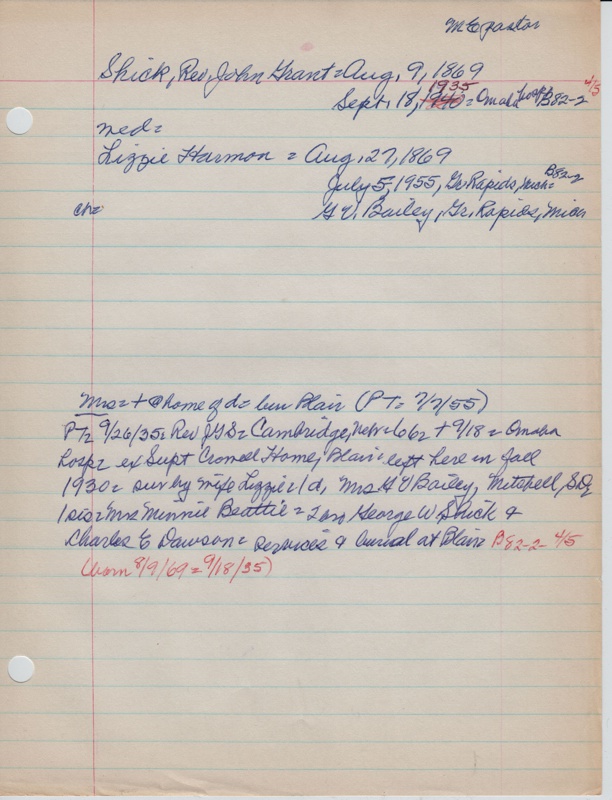 ME pastor
Shick, Rev, John Grant = Aug, 9, 1869
1935
Sept. 18, 1940 = Omaha hosp B82-2 4/5
med =
Lizzie Harmon = Aug, 27, 1869
July 5, 1955, Gr. Rapids, Mich = B82-2
ch= G V. Bailey, Gr. Rapids, Mich
Mrs = + @ home of d = bur Blair (PT = 7/7/55)
PT= 9/26/35 = Rev JGS = Cambridge, Nebr = 66 + 9/18 = Omaha
hosp = ex Supt Crowell Home, Blair = left here in fall
1930 = sur by wife Lizzie 1 d, Mrs G V Bailey, Mitchell, SD,
1 sis = Mrs Minnie Beattie = 2 George W Shick &
Charles E Dawson = services & burial at Blair B82-2 4/5
(born 8/9/69 = 9/18/35)